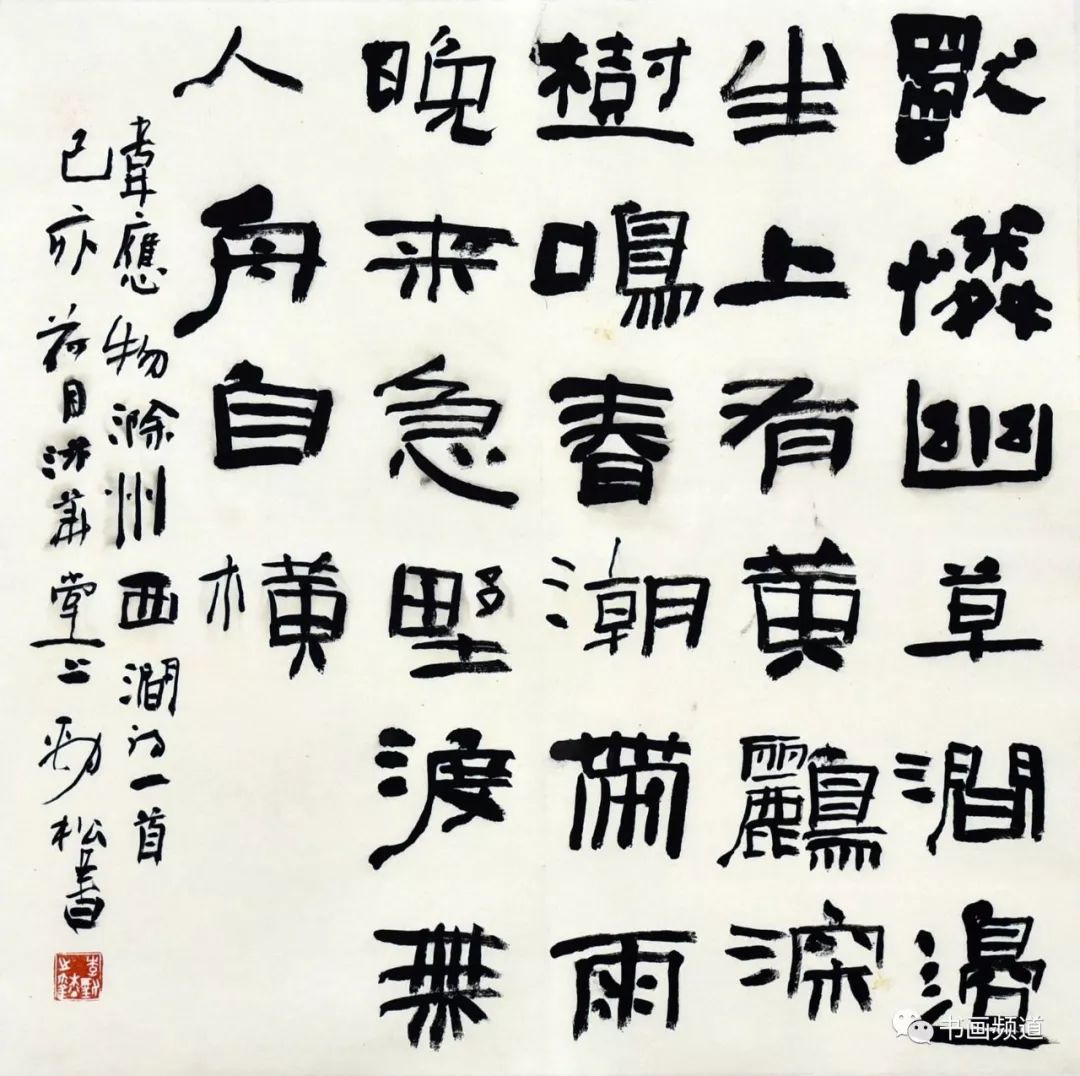 獨憐幽草澗邊
生上有黃鸝深
樹鳴春潮帶雨
晚来急野渡無
人舟自橫
韋應物滁州西澗詩一首
己亥荷月堂上勁松書
书画频道